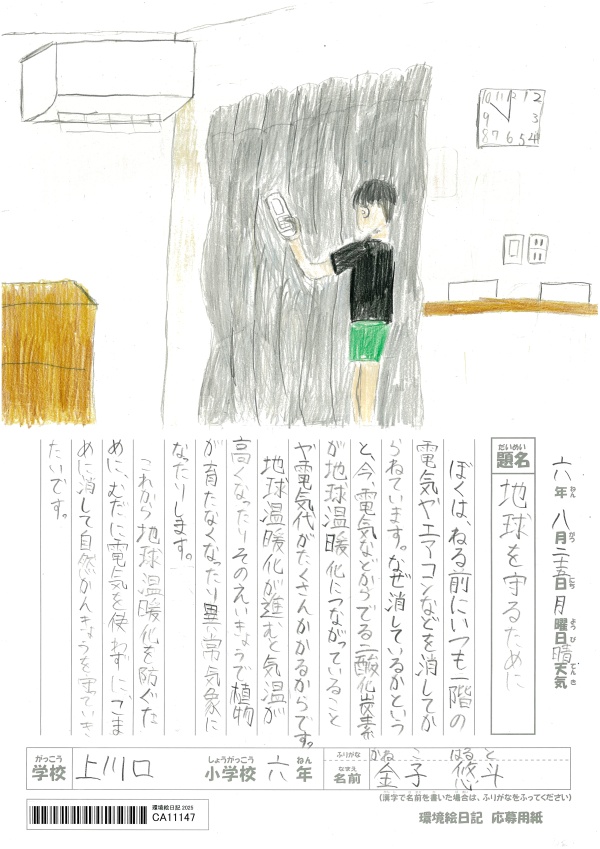 10 11 12 1 2
9 3
8 7 6 5 4
六年 八月 二十五日 月曜日 晴 天気
ねん がつ にち ようび てんき
だいめい
題名
地球を守るために
ぼくは、ねる前にいつも一階の
電気やエアコンなどを消してか
らねています。なぜ消しているかという
と、今、電気などからでる二酸化炭素
が地球温暖化につながっていること
や電気代がたくさんかかるからです。
地球温暖化が進むと気温が
高くなったりそのえいきょうで植物
が育たなくなったり異常気象に
なったりします。
これから地球温暖化を防ぐた
めに、むだに電気を使わずに、こま
めに消して自然かんきょうを守っていき
たいです。
がっこう
学校
上川口
しょうがっこう
小学校
六
ねん
年
ふりがな
かね こ はる と
なまえ
名前
金子 悠斗
(漢字で名前を書いた場合は、ふりがなをふってください)
環境絵日記 2025
CA11147
環境絵日記 応募用紙